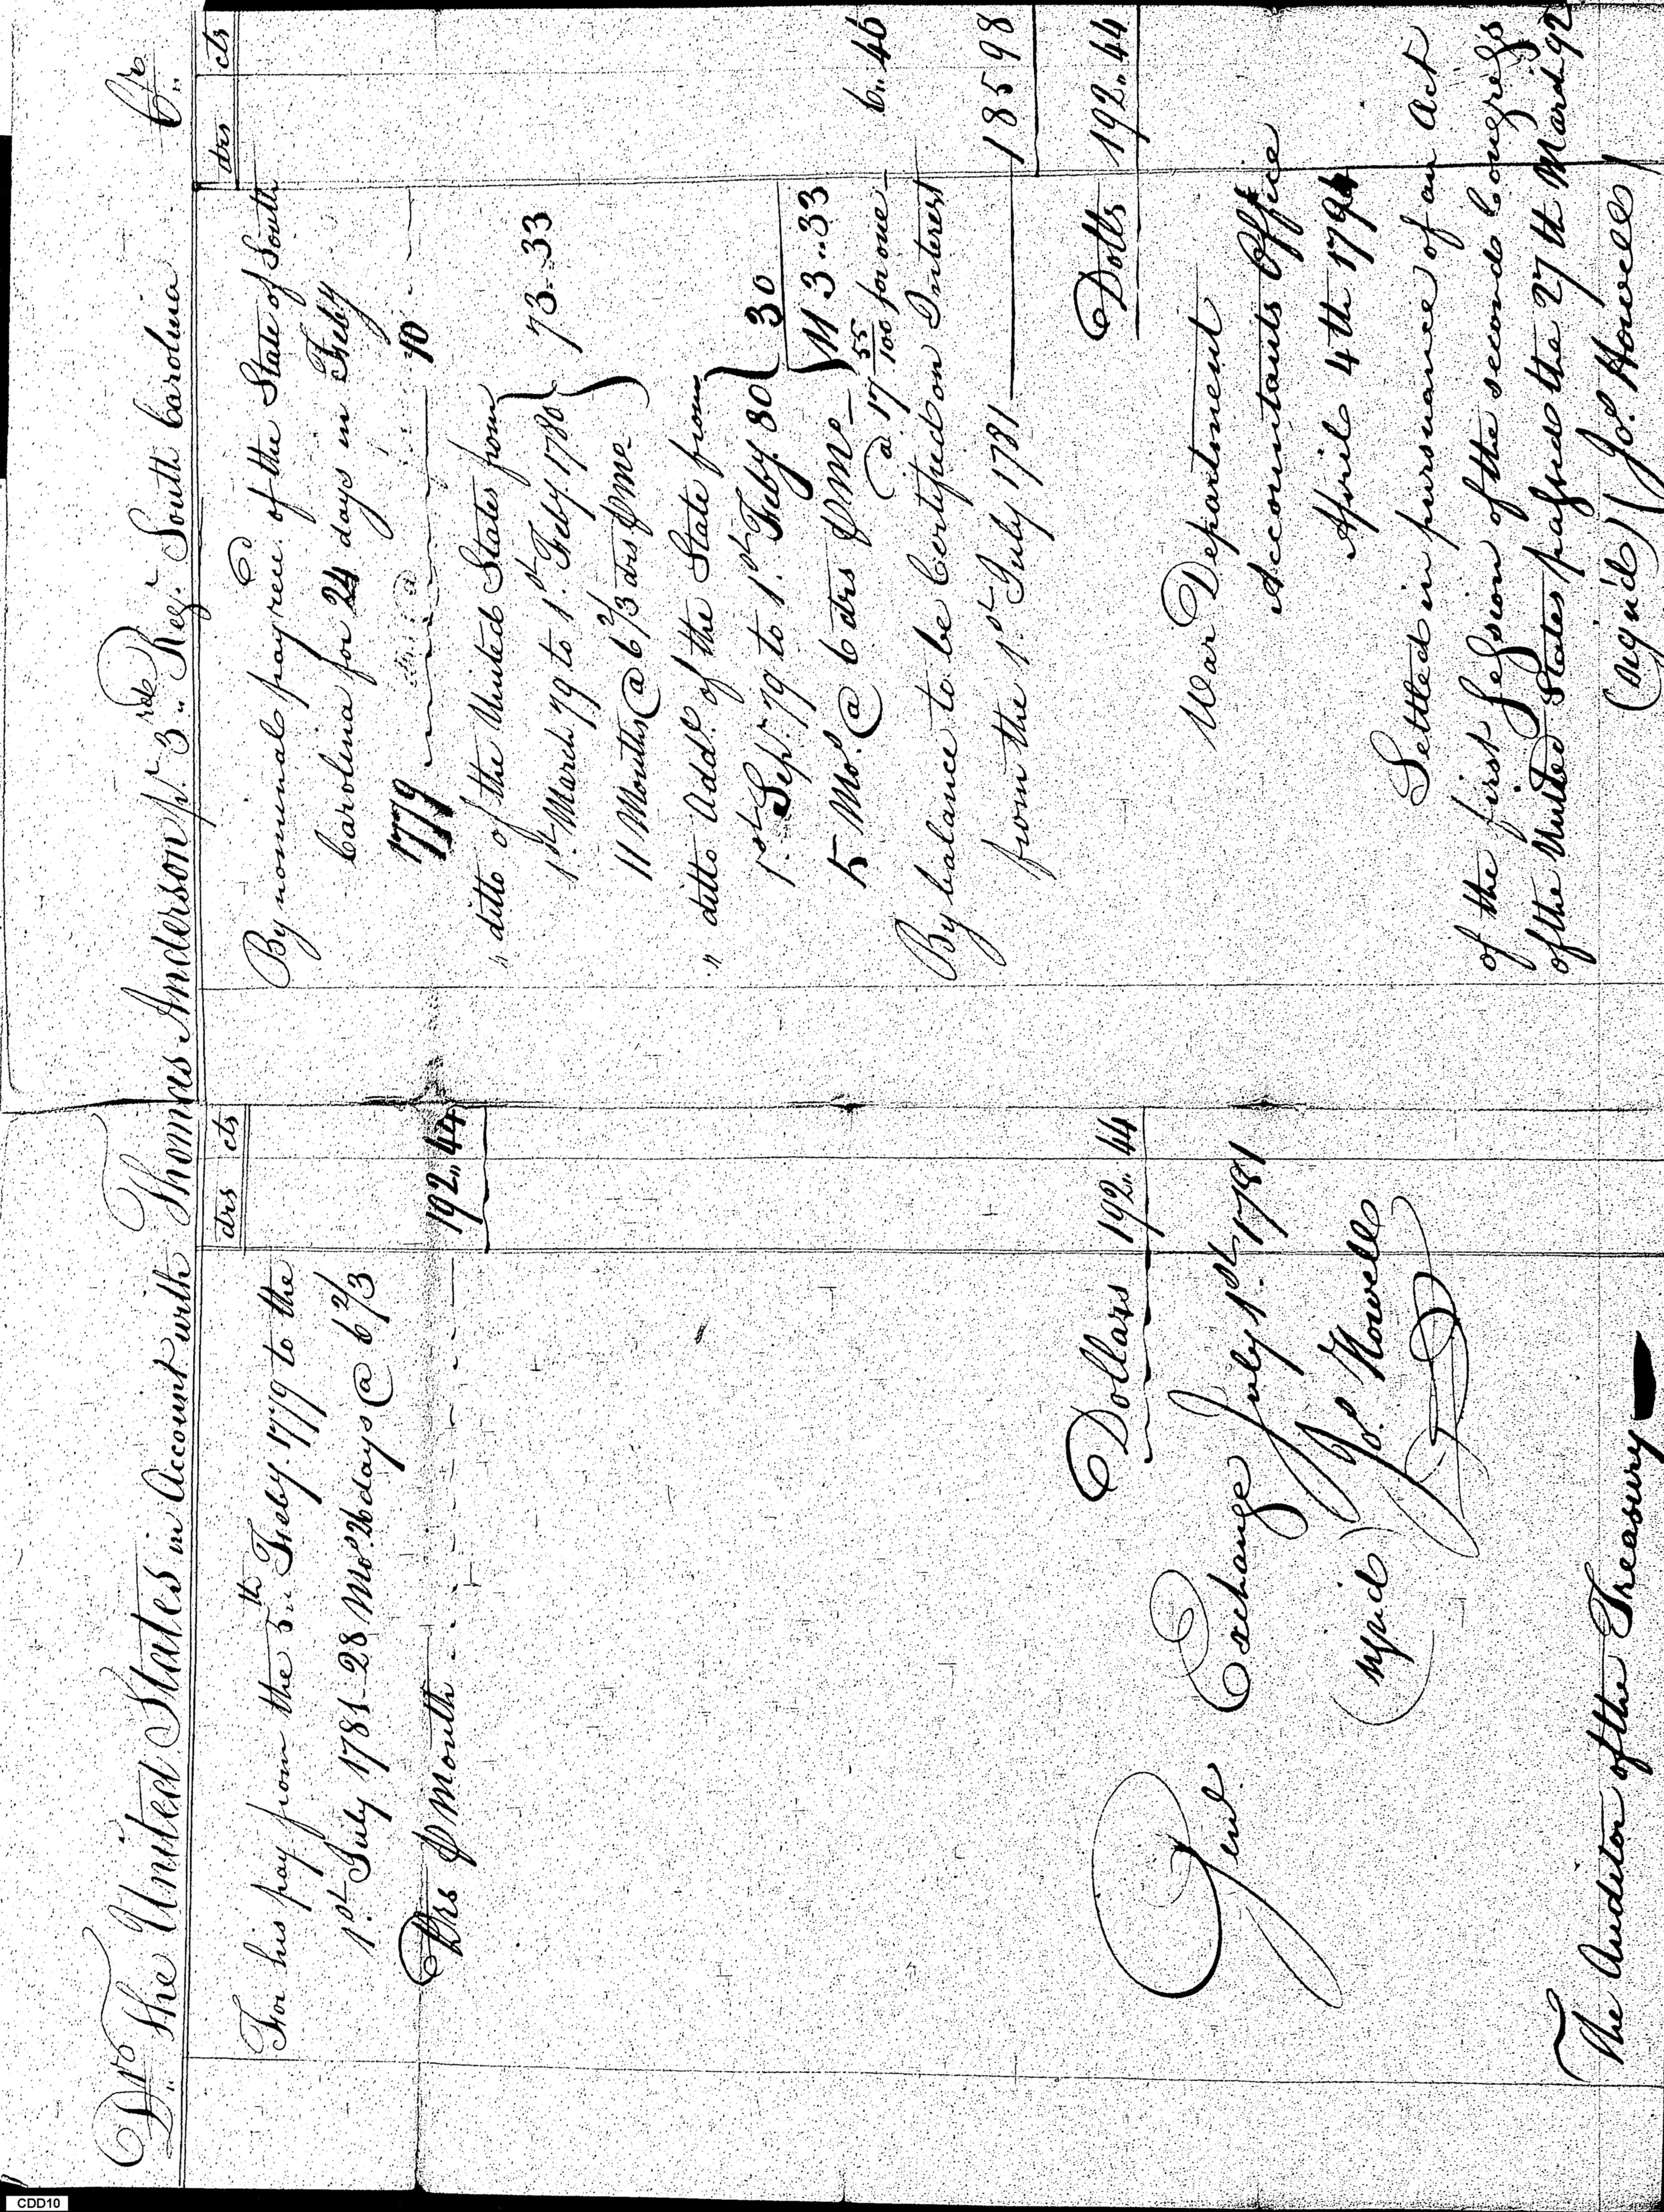 Dr. The United States in Account with Thomas Anderson pt. 3rd Reg. South Carolina Cr.
drs cts
For his pay from the 5th Feby. 1779 to the
1st July 1781 - 28 Mos. 26 days @ 6 2/3
Drs ⅌ Month 192,, 44
Dollars 192,, 44
Genl. Exchange July 1st 1781
signd Jos. Howell
The Auditor of the Treasury
drs cts
By nominal pay recd. of the State of South
Carolina for 24 days in Feby
1779 10
" ditto of the United States from
1st March 79 to 1st Feby 1780
11 Months @ 6 2/3 drs ⅌ Mo. 73..33
" ditto Addl. of the State from
1st Sepr. 79 to 1st Feby. 80
5 Mos. @ 6 drs ⅌ Mo - 30
113..33
@ 17 55/100 for one - 6,, 46
By balance to be Certified on Interest
from the 1st July 1781 185 98
Dolls 192,, 44
War Department
Accountants Office
April 4th 1794
Settled in pursuance of an Act
of the first Session of the second Congress
of the United States passed the 27th March 92
(sign'd) Jos. Howell
CDD10